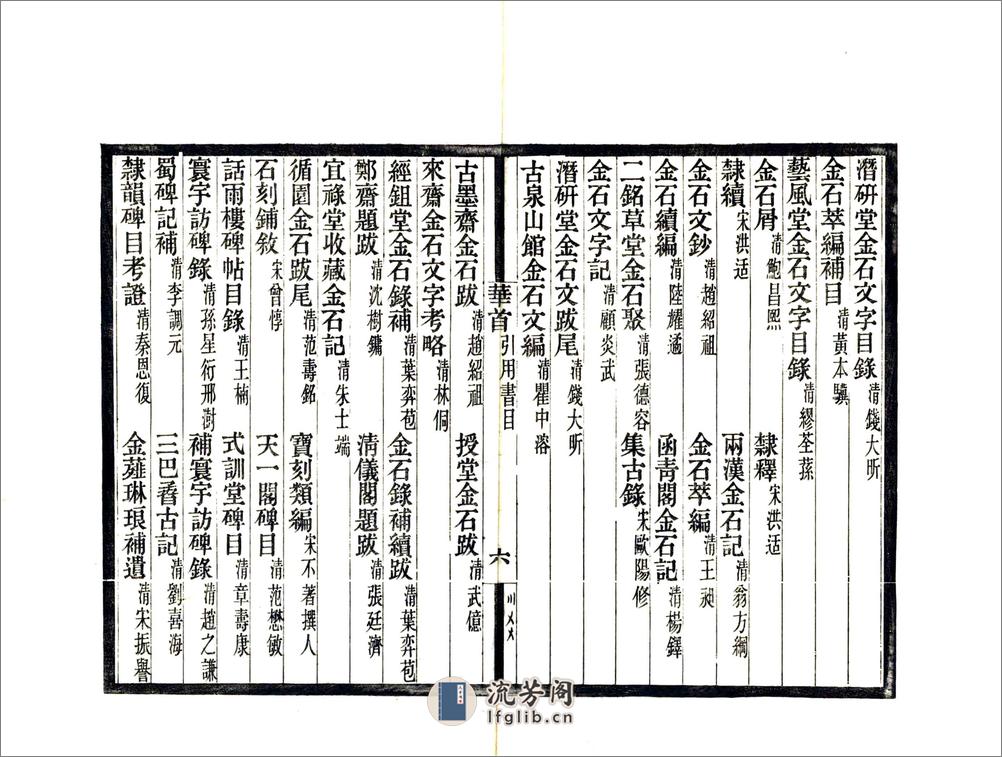 潛研堂金石文字目錄 清錢大昕
金石萃編補目 清黃本驥
藝風堂金石文字目錄 清繆荃蓀
金石屑 清鮑昌熙 隸釋 宋洪适
隸續 宋洪适 兩漢金石記 清翁方綱
金石文鈔 清趙紹祖 金石萃編 清王昶
金石續編 清陸耀遹 函青閣金石記 清楊鐸
二銘草堂金石聚 清張德容 集古錄 宋歐陽修
金石文字記 清顧炎武
潛研堂金石文跋尾 清錢大昕
古泉山館金石文編 清瞿中溶
華首 引用書目 六
古墨齋金石跋 清趙紹祖 授堂金石跋 清武億
來齋金石文字考略 清林侗
經鉏堂金石錄補 清葉弈苞 金石錄補續跋 清葉弈苞
鄭齋題跋 清沈樹鏞 清儀閣題跋 清張廷濟
宜祿堂收藏金石記 清朱士端
循園金石跋尾 清范壽銘 寶刻類編 宋不著撰人
石刻鋪敘 宋曾惇 天一閣碑目 清范懋敏
話雨樓碑帖目錄 清王楠 式訓堂碑目 清章壽康
寰宇訪碑錄 清孫星衍邢澍 補寰宇訪碑錄 清趙之謙
蜀碑記補 清李調元 三巴𦾔古記 清劉喜海
隸韻碑目考證 清秦恩復 金薤琳琅補遺 清宋振譽
流芳阁
lfglib.cn